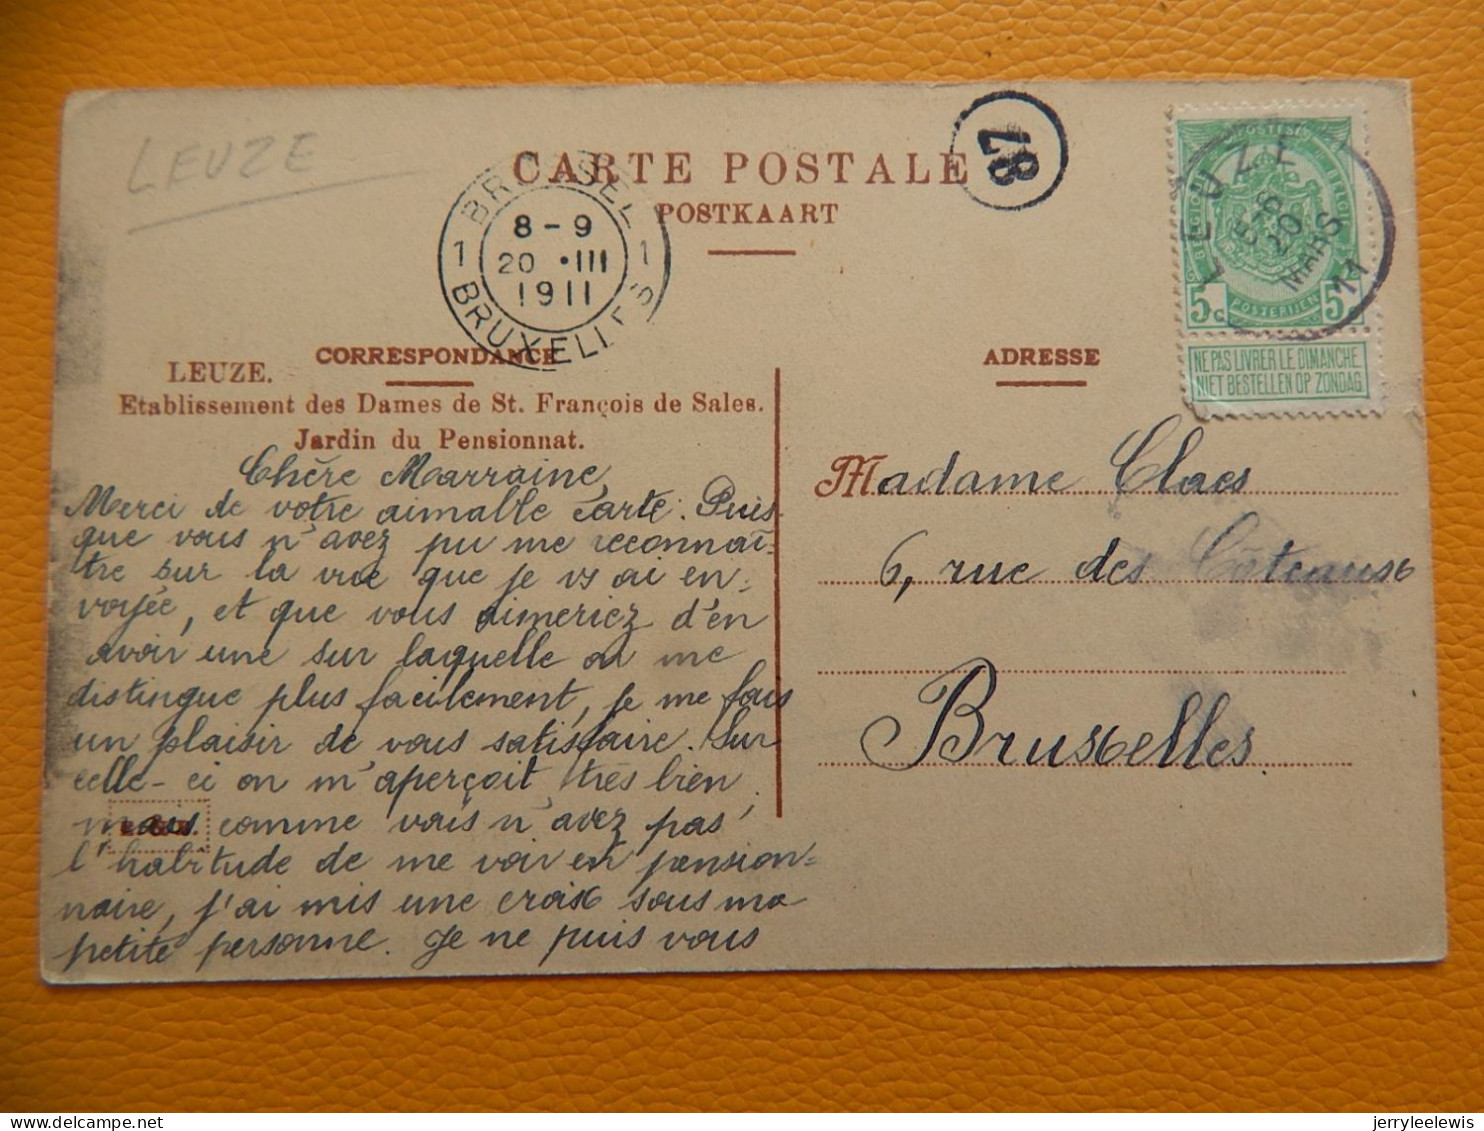 LEUZE
CARTE POSTALE
POSTKAART
87
BRUSSEL
1 8-9 1
20 •III
1911
BRUXELLES
LEUZE
5-6
20
MARS
11
POSTES
BELGIQUE
BELGIË
5c 5c
POSTERIJEN
NE PAS LIVRER LE DIMANCHE
NIET BESTELLEN OP ZONDAG
CORRESPONDANCE
LEUZE.
Etablissement des Dames de St. François de Sales.
Jardin du Pensionnat.
Chère Marraine,
Merci de votre aimable carte. Puis
que vous n'avez pu me reconnaî-
tre sur la vue que je vs ai en-
voyée, et que vous aimeriez d'en
avoir une sur laquelle on me
distingue plus facilement, je me fais
un plaisir de vous satisfaire. Sur
celle-ci on m'aperçoit très bien,
mais comme vous n'avez pas
l'habitude de me voir en pension-
naire, j'ai mis une croix sous ma
petite personne. Je ne puis vous
ADRESSE
Madame Claes
6, rue des Côteaux
Bruxelles.
jerryleelewis